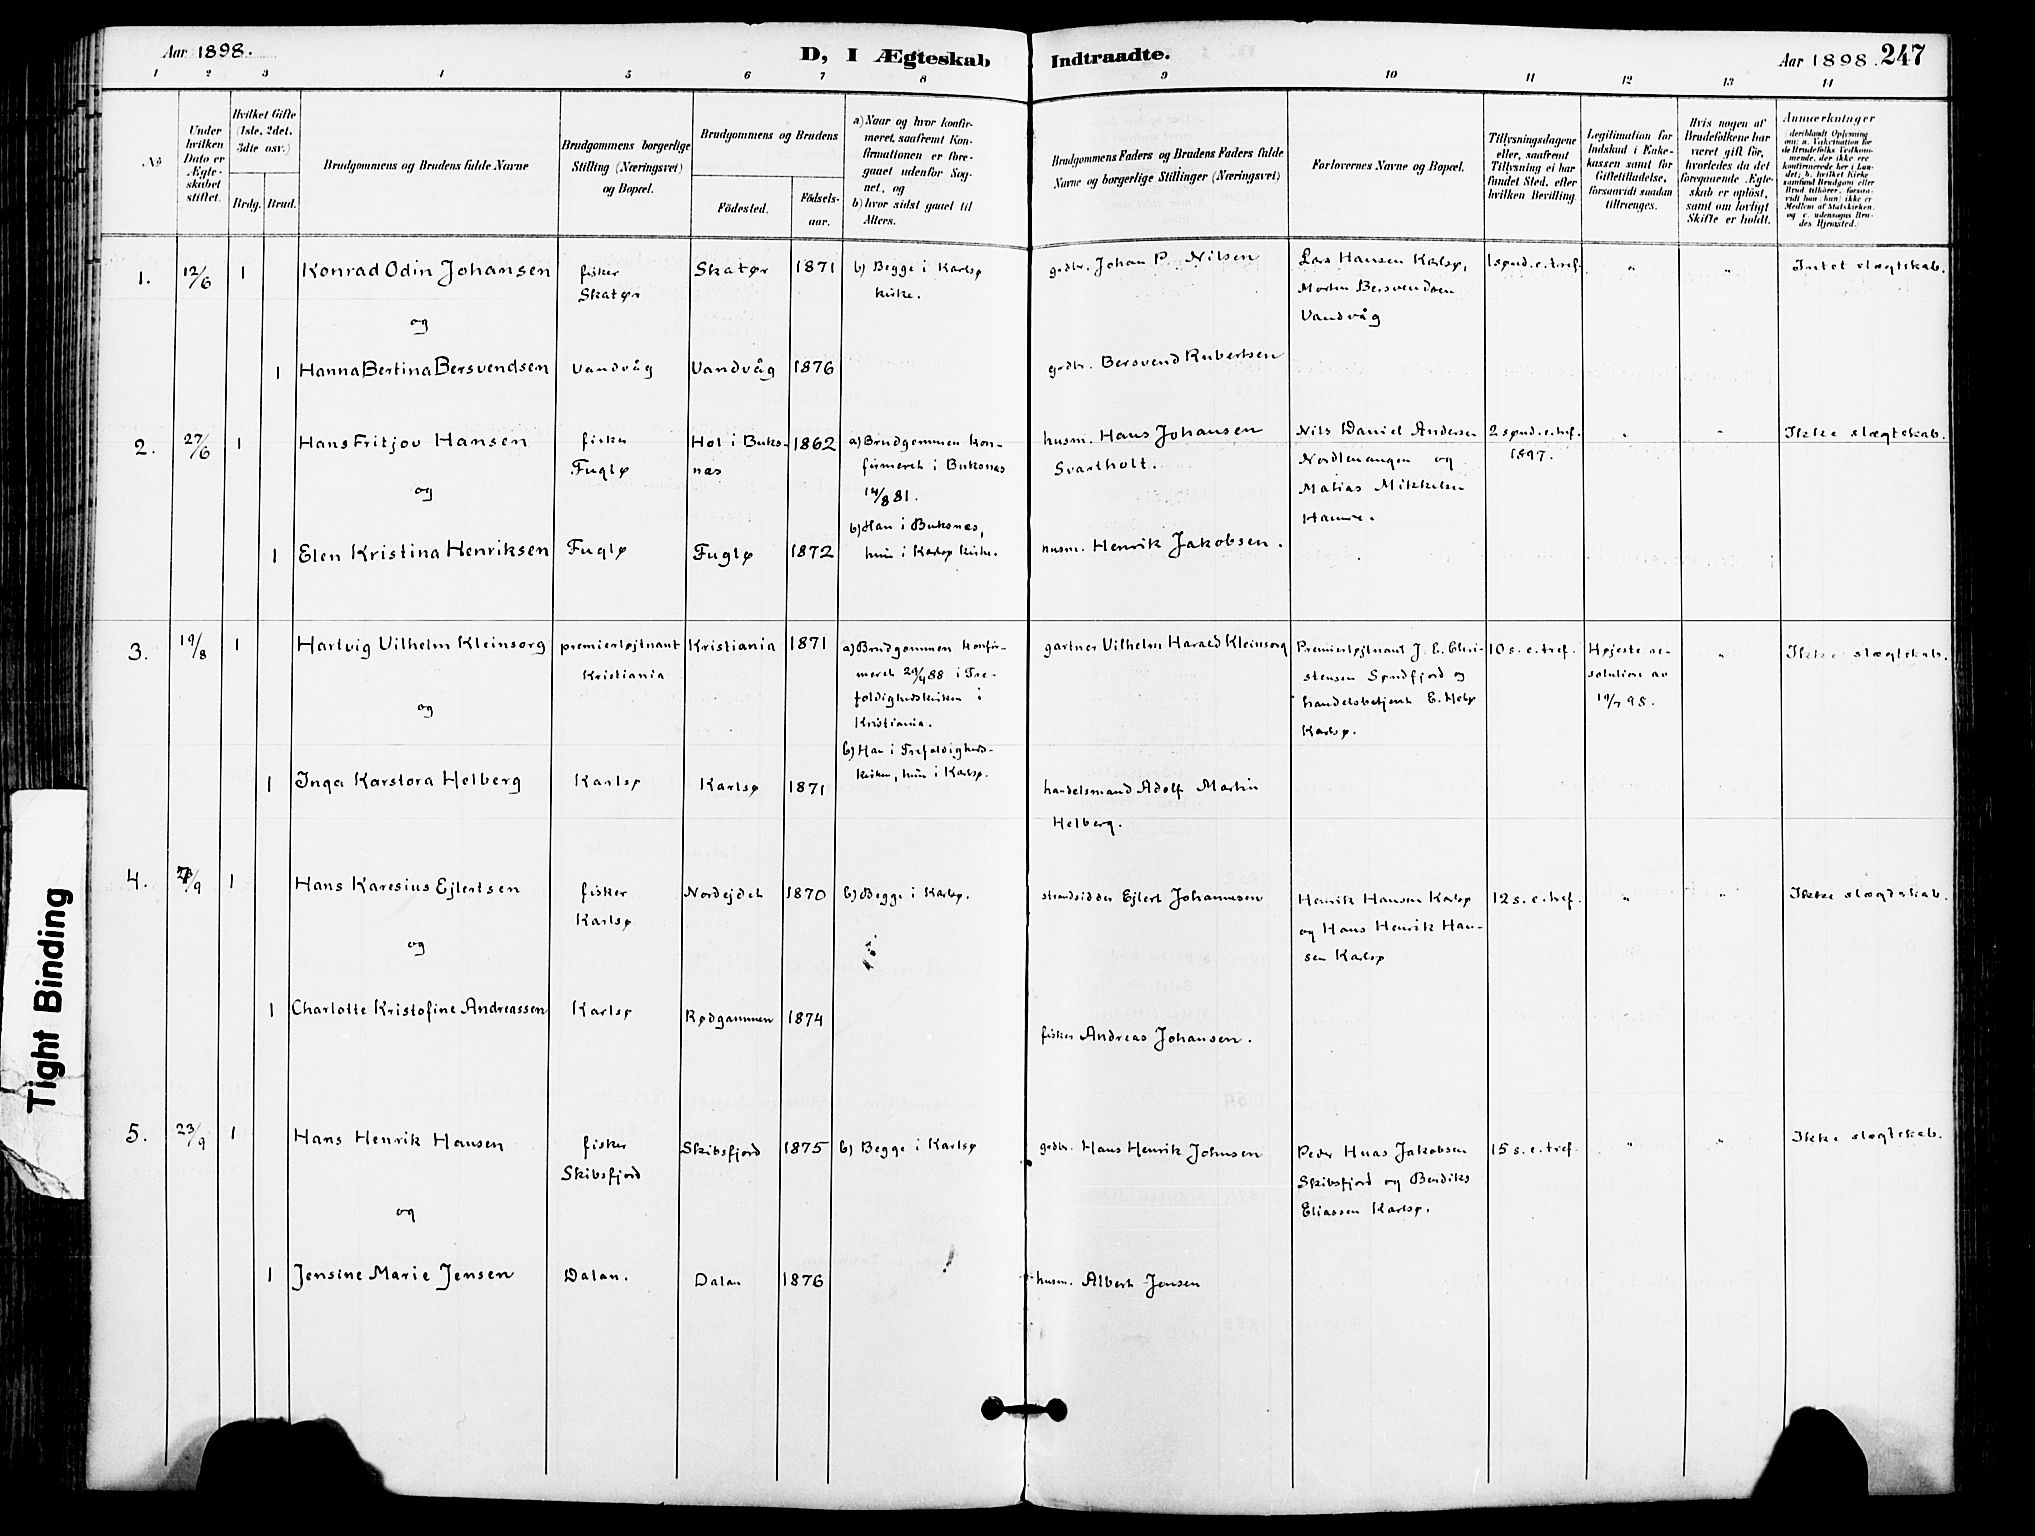 Aar 1898.
D, I Ægteskab Indtraadte.
Aar 1898. 247
1 2 3 4 5 6 7 8 9 10 11 12 13 14
No
Under hvilken Dato er Ægteskabet stiftet.
Hvilket Gifte (1ste, 2det, 3die osv.)
Brdg. Brud.
Brudgommens og Brudens fulde Navne
Brudgommens borgerlige Stilling (Næringsvei) og Bopæl.
Brudgommens og Brudens
Fødested.
Fødselsaar.
a) Naar og hvor konfirmeret, saafremt Konfirmationen er foregaaet udenfor Sognet, og
b) hvor sidst gaaet til Alters.
Brudgommens Faders og Brudens Faders fulde Navne og borgerlige Stillinger (Næringsvei)
Forlovernes Navne og Bopæl.
Tillysningsdagene eller, saafremt Tillysning ei har fundet Sted, efter hvilken Bevilling.
Legitimation for Indskud i Enkekassen samt for Giftetilladelse, forsaavidt saadan tiltrænges.
Hvis nogen af Brudefolkene har været gift før, hvorledes da det foregaaende Ægteskab er opløst, samt om lovligt Skifte er holdt.
Anmærkninger
1. 12/6 1 Konrad Odin Johansen
fisker
Skatør
Skatør 1871
b) Begge i Karlsø
kirke.
grdbr. Johan P. Nilsen
Lars Hansen Karlsø,
Morten Bersvendsen
Vandvåg
1 sønd. e. tref. " "
Intet slægtskab.
og
1 Hanna Bertina Bersvendsen
Vandvåg
Vandvåg 1876
grdbr. Bersvend Rubertsen
2. 27/6 1 Hans Fritjov Hansen
fisker
Fuglø
Hol i Buks-
næs
1862
a) Brudgommen kon-
firmeret i Buksnæs
14/8 81.
b) Han i Buksnæs,
hun i Karlsø kirke.
husm. Hans Johansen
Svartholt.
Nils Daniel Andersen
Nordlenangen og
Matias Mikkelsen
Hamre.
2 sønd. e. tref.
1897.
" "
Ikke slægtskab.
og
1 Elen Kristina Henriksen
Fuglø
Fuglø 1872
husm. Henrik Jakobsen.
3. 19/8 1 Hartvig Vilhelm Kleinsorg
premierløjtnant
Kristiania
Kristiania 1871
a) Brudgommen konfir-
meret 29/4 88 i Tre-
foldighedskirken i
Kristiania.
b) Han i Trefoldigheds-
kirken, hun i Karlsø.
gartner Vilhelm Harald Kleinsorg
Premierløjtnant J. E. Chri-
stensen Søndfjord og
handelsbetjent E. Hebø
Karlsø.
10 s. e. tref.
Højeste re-
solution av
19/7 98.
"
Ikke slægtskab.
og
1 Inga Karstora Helberg
Karlsø
Karlsø 1871
handelsmand Adolf Martin
Helberg.
4. /9 1 Hans Karesius Ejlertsen
fisker
Karlsø
Nordejdet 1870
b) Begge i Karlsø.
strandsidder Ejlert Johannesen
Henrik Hansen Karlsø
og Hans Henrik Han-
sen Karlsø
12 s. e. tref. " "
Ikke slægtskab.
og
1 Charlotte Kristofine Andreassen
Karlsø
Rødgammen 1874
fisker Andreas Johansen.
5. 23/9 1 Hans Henrik Hansen
fisker
Skibsfjord
Skibsfjord 1875
b) Begge i Karlsø
grdbr. Hans Henrik Johnsen
Peder Huas Jakobsen
Skibsfjord og Bendiks
Eliassen Karlsø.
15 s. e. tref. " "
Ikke slægtskab.
og
1 Jensine Marie Jensen
Dalan.
Dalan 1876
husm. Albert Jensen
Tight Binding